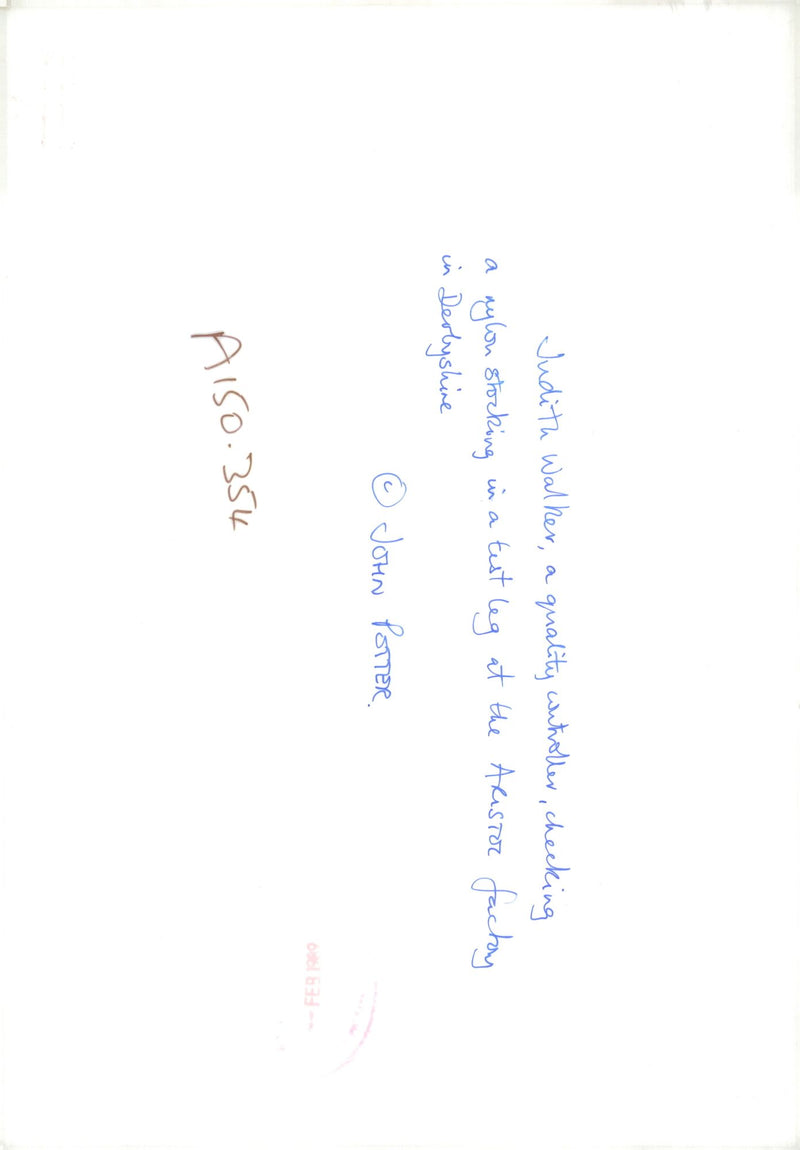 Judith Walker, a quality controller, checking
a nylon stocking in a test leg at the ARISTOC factory
in Derbyshire
© JOHN POTTER.
A150.354
FEB 1989